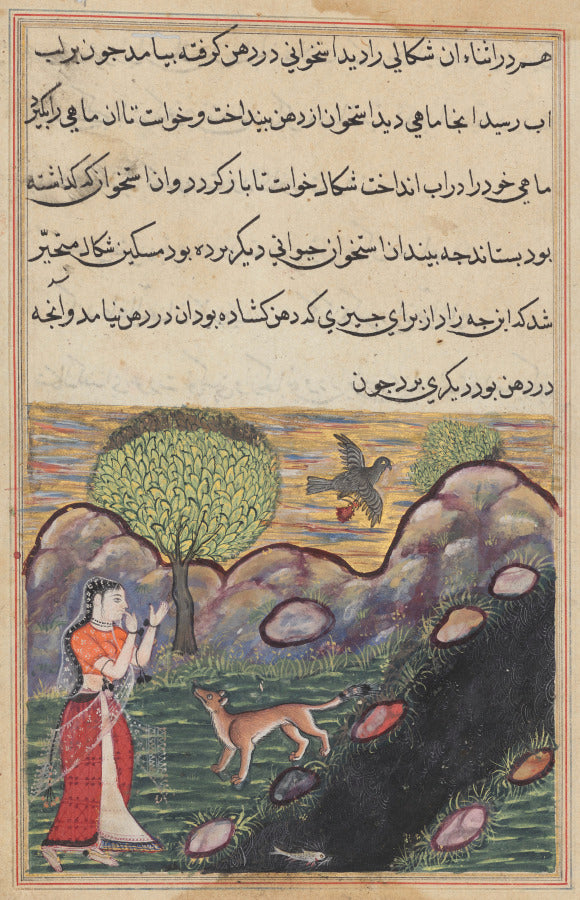 هم در اثناء ان شكالي را ديد استخواني در دهن كرفته بيامد جون بر لب
اب رسيد انجا ماهي ديد استخوان از دهن بينداخت و خواست تا ان ماهي را بكيرد
ماهي خود را در اب انداخت شكال خواست تا باز كردد و ان استخوان كه كذاشته
بود بستاند جه بيند ان استخوان حيواني ديكر برده بود مسكين شكال متحيّر
شد كه اين جه زاد از براي جيزي كه دهن كشاده بود ان در دهن نيامد و آنجه
در دهن بود ديكري برد جون